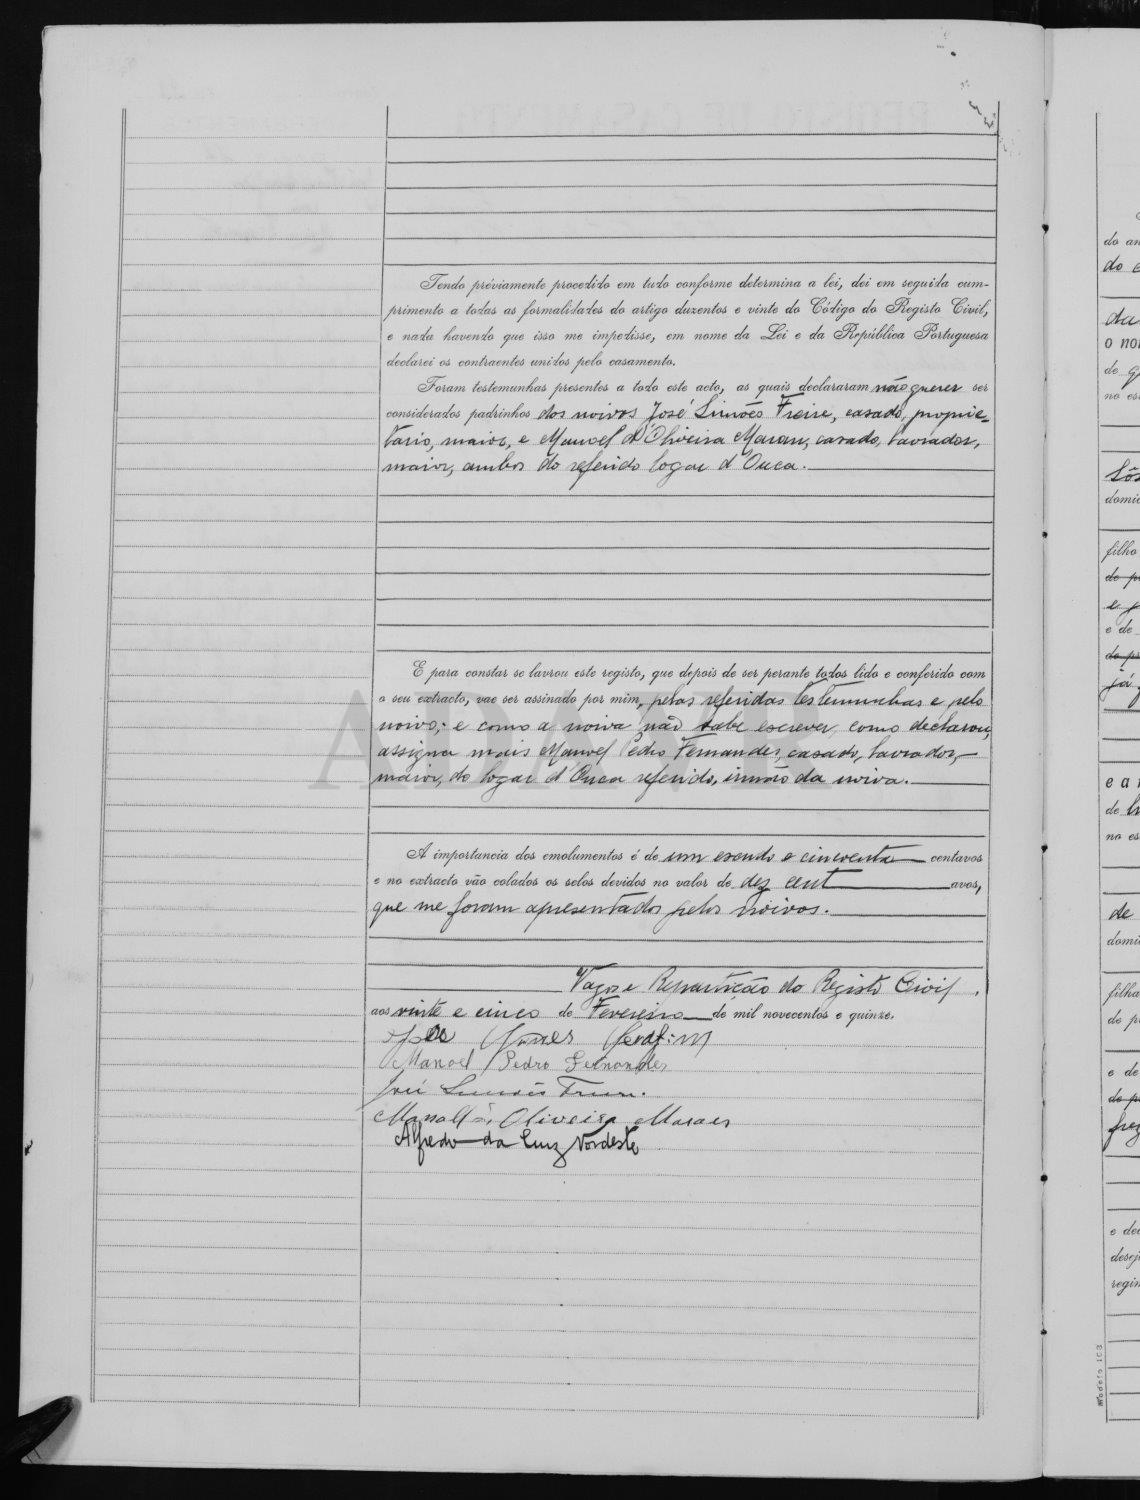 Tendo préviamente procedido em tudo conforme determina a lei, dei em seguida cum-
primento a todas as formalidades do artigo duzentos e vinte do Código do Registo Civil,
e nada havendo que isso me impedisse, em nome da Lei e da República Portuguesa
declarei os contraentes unidos pelo casamento.
Foram testemunhas presentes a todo este acto, as quais declararam não querer ser
considerados padrinhos dos noivos José Simões Freire, casado, proprie-
tario, maior, e Manoel d'Oliveira Maran, casado, lavrador,
maior, ambos do referido logar d'Ouca.
E para constar se lavrou este registo, que depois de ser perante todos lido e conferido com
o seu extracto, vae ser assinado por mim, pelas referidas testemunhas e pelo
noivo; e como a noiva não sabe escrever, como declarou,
assigna mais Manoel Pedro Fernandes, casado, lavrador,
maior, do logar d'Ouca referido, irmão da noiva.
A importancia dos emolumentos é de um escudo e cincoenta centavos
e no extracto vão colados os selos devidos no valor de dez cent avos,
que me foram apresentados pelos noivos.
Vagos e Repartição do Registo Civil,
aos vinte e cinco de Fevereiro de mil novecentos e quinze.
Manoel Pedro Fernandes
José Simões Freire.
Oliveira
Alfredo da Cruz Nordeste
do an
da
o no
de
no es
domi
filho
e de
já
e a
de
no es
de
domi
filha
de p
e de
freg
e de
desej
regi
Modelo 103